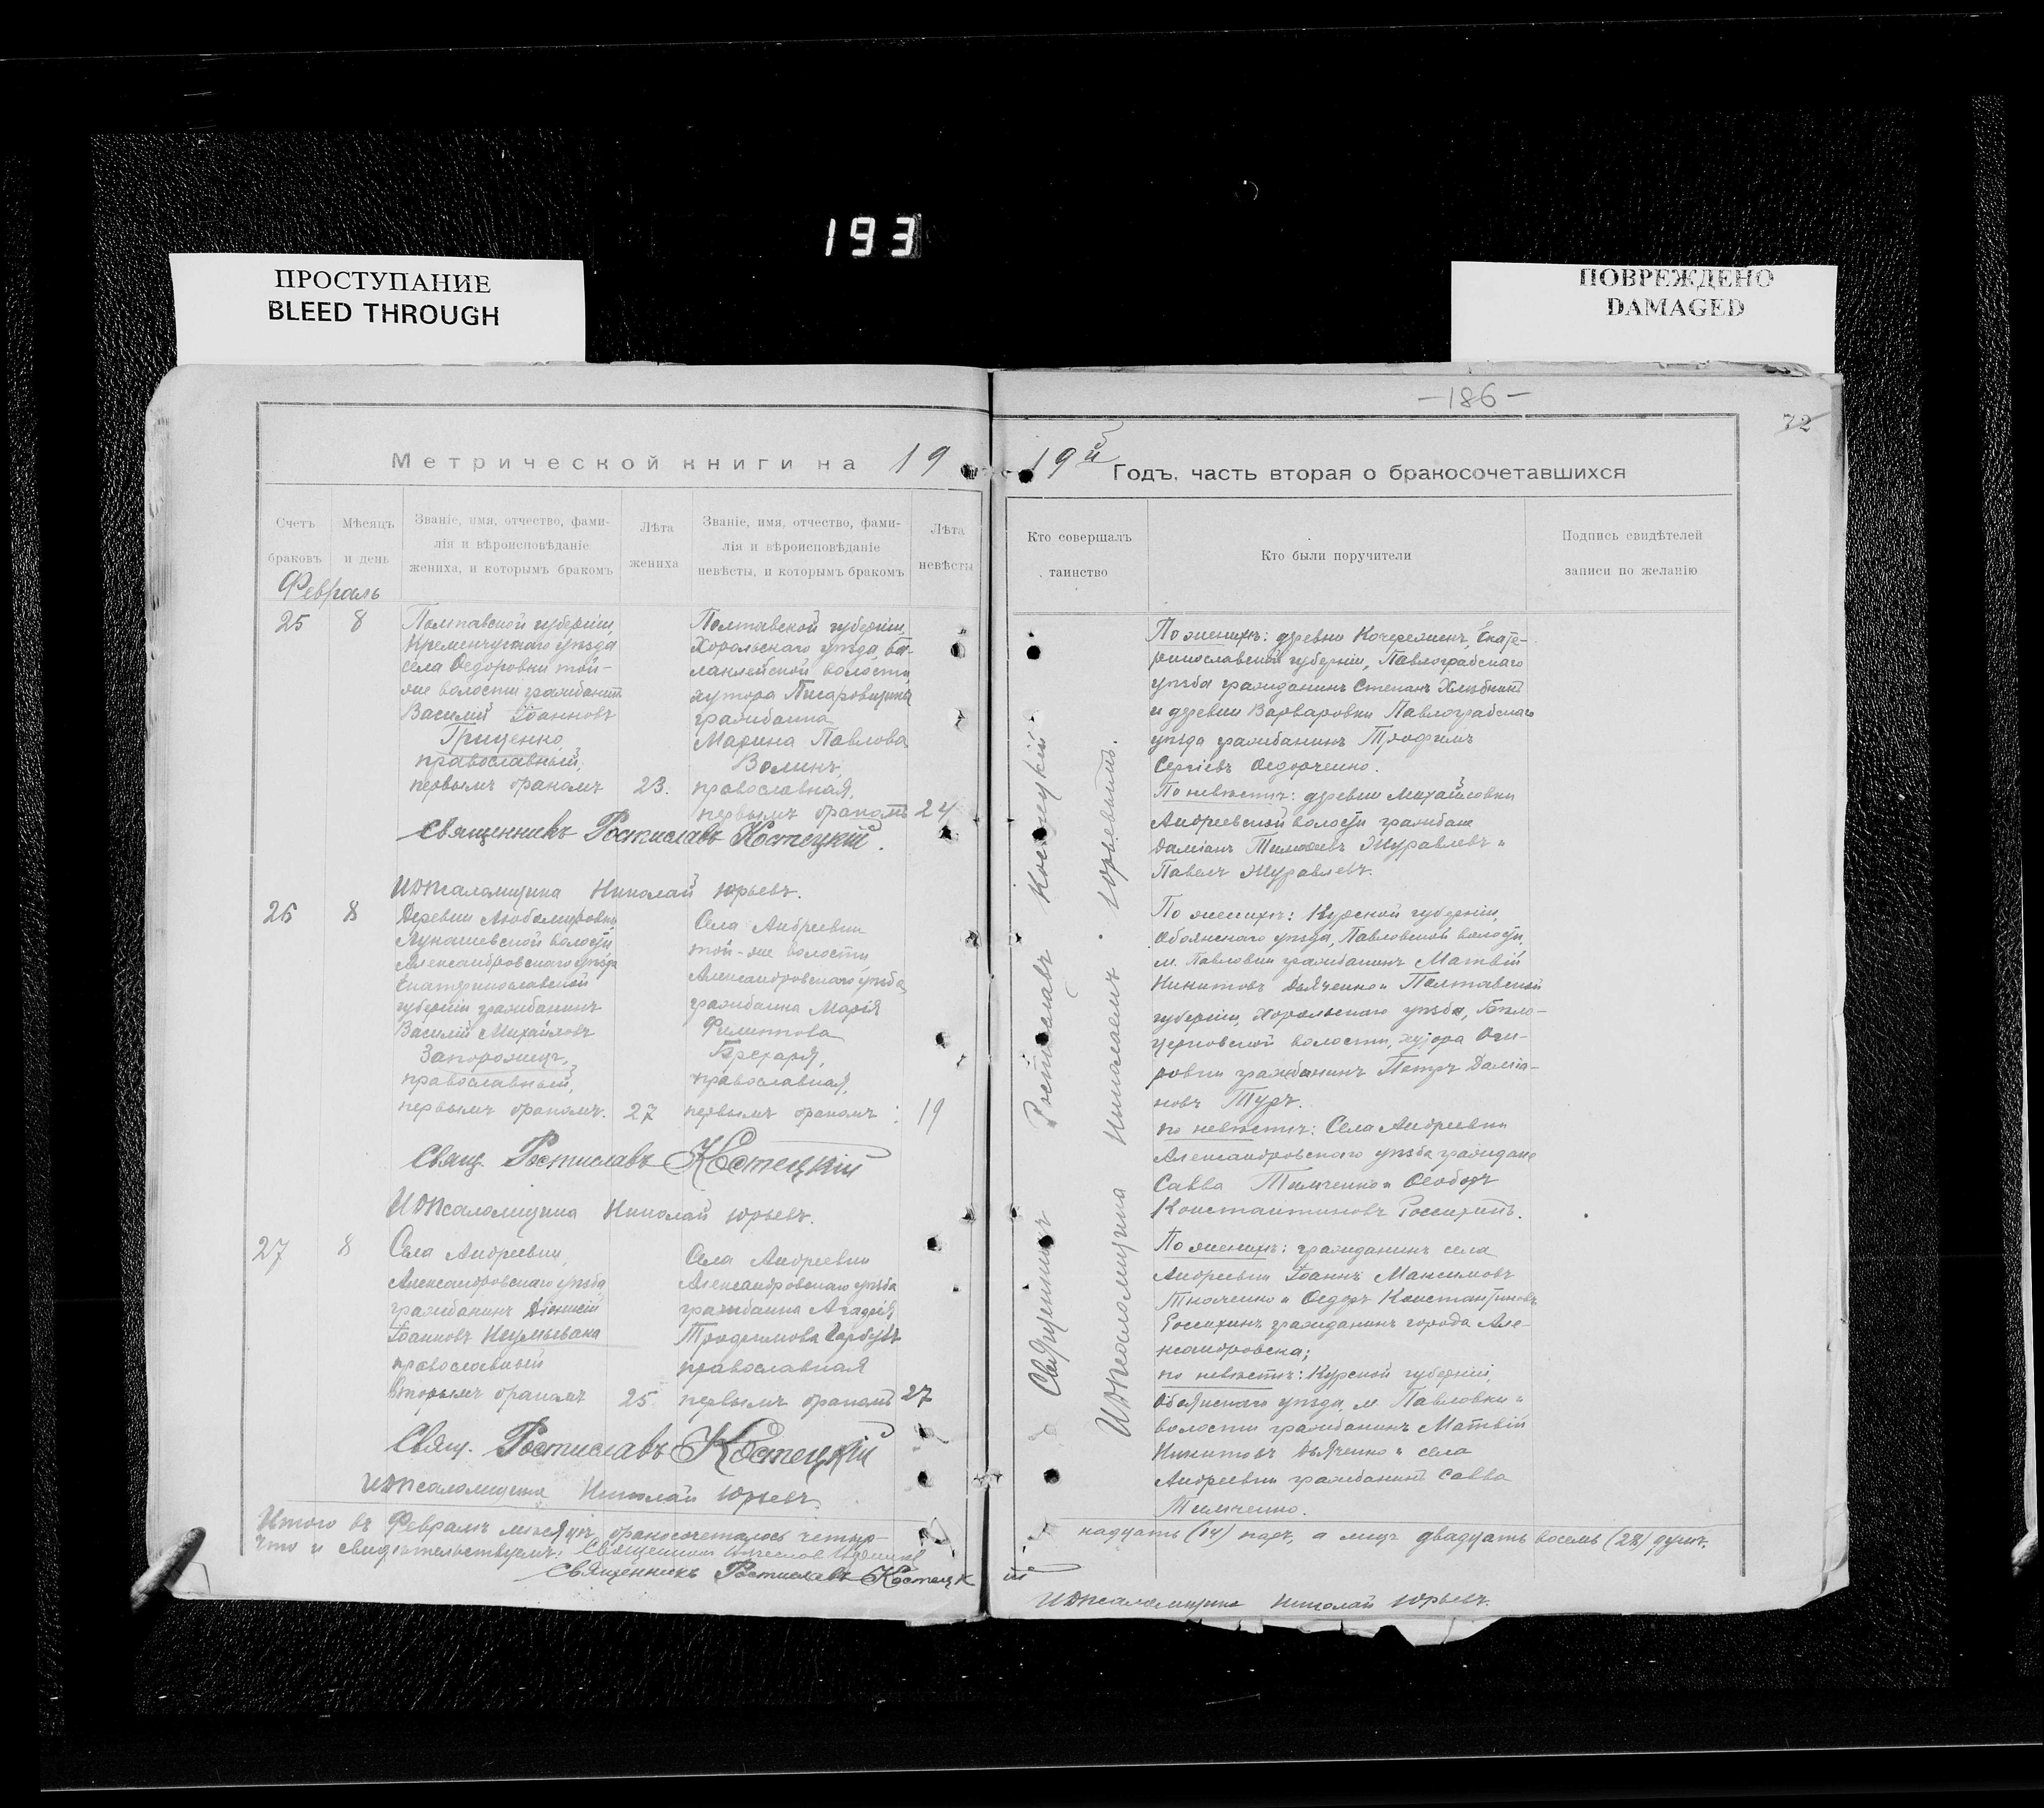 193
ПРОСТУПАНИЕ
BLEED THROUGH
ПОВРЕЖДЕНО
DAMAGED
-186-
72
Метрической книги на 19
19й Годъ, часть вторая о бракосочетавшихся
Счетъ браковъ
Мѣсяцъ и день
Званіе, имя, отчество, фами-
лія и вѣроисповѣданіе
жениха, и которымъ бракомъ
Лѣта жениха
Званіе, имя, отчество, фами-
лія и вѣроисповѣданіе
невѣсты, и которымъ бракомъ
Лѣта невѣсты
Кто совершалъ
таинство
Кто были поручители
Подпись свидѣтелей
записи по желанію
Февраль
25
8
Полтавской губерніи,
Кременчугскаго уѣзда
села Ѳедоровки той-
же волости гражданинъ
Василій Іоанновъ
Гриценко,
православный,
первымъ бракомъ
23.
Полтавской губерніи,
Хорольскаго уѣзда, Ба-
ланлейской волости
хутора
гражданка
Марина Павлова
Воликъ,
православная,
первымъ бракомъ
24
Священникъ Ростиславъ Костецкій.
Николай Юрьевъ.
26
8
Деревни Любомировки,
Лукашевской волости
Александровскаго уѣзда
Екатеринославской
губерніи гражданинъ
Василій Михайловъ
Запорожецъ,
православный,
первымъ бракомъ.
27
Села Андреевки
той-же волости
Александровскаго уѣзда
гражданка Марія
Филиппова
православная,
первымъ бракомъ
19
Свящ. Ростиславъ Костецкій
Николай Юрьевъ.
27
8
Села Андреевки,
Александровскаго уѣзда
гражданинъ Діонисій
Іоанновъ
православный
вторымъ бракомъ
25
Села Андреевки
Александровскаго уѣзда
гражданка Агафія
Трофимова Гарбузъ
православная
первымъ бракомъ
27
Свящ. Ростиславъ Костецкій
Николай Юрьевъ.
Священникъ Ростиславъ Костецкій
Николаемъ Юрьевымъ.
По женихѣ: деревни Кочережекъ, Екате-
ринославской губерніи, Павлоградскаго
уѣзда гражданинъ Степанъ
и деревни Варваровки Павлоградскаго
уѣзда гражданинъ Трофимъ
Сергіевъ Ѳедорченко.
По невѣстѣ: деревни Михайловки
Андреевской волости граждане
Даміанъ Тимоѳеевъ Журавлевъ и
Павелъ Журавлевъ.
По женихѣ: Курской губерніи,
Обоянскаго уѣзда, Павловской волости,
м. Павловки гражданинъ Матвій
Никитовъ Дьяченко и Полтавской
губерніи, Хорольскаго уѣзда, Бѣло-
церковской волости, хутора
гражданинъ Петръ Даміа-
новъ Туръ.
по невѣстѣ: Села Андреевки
Александровскаго уѣзда граждане
Савва Тимченко и Ѳеодоръ
Константиновъ Россихинъ.
По женихѣ: гражданинъ села
Андреевки Іоаннъ Максимовъ
Ткаченко и Ѳедоръ Константиновъ
Россихинъ гражданинъ города Але-
ксандровска;
по невѣстѣ: Курской губерніи,
Обоянскаго уѣзда, м. Павловки и
волости гражданинъ Матвій
Никитовъ Дьяченко и села
Андреевки гражданинъ Савва
Тимченко.
Итого въ Февралѣ мѣсяцѣ бракосочеталось четыр-
надцать (14) паръ, а лицъ двадцать восемь (28) душъ.
Что и свидѣтельствуемъ: Священникъ
Священникъ Ростиславъ Костецкій
Николай Юрьевъ.